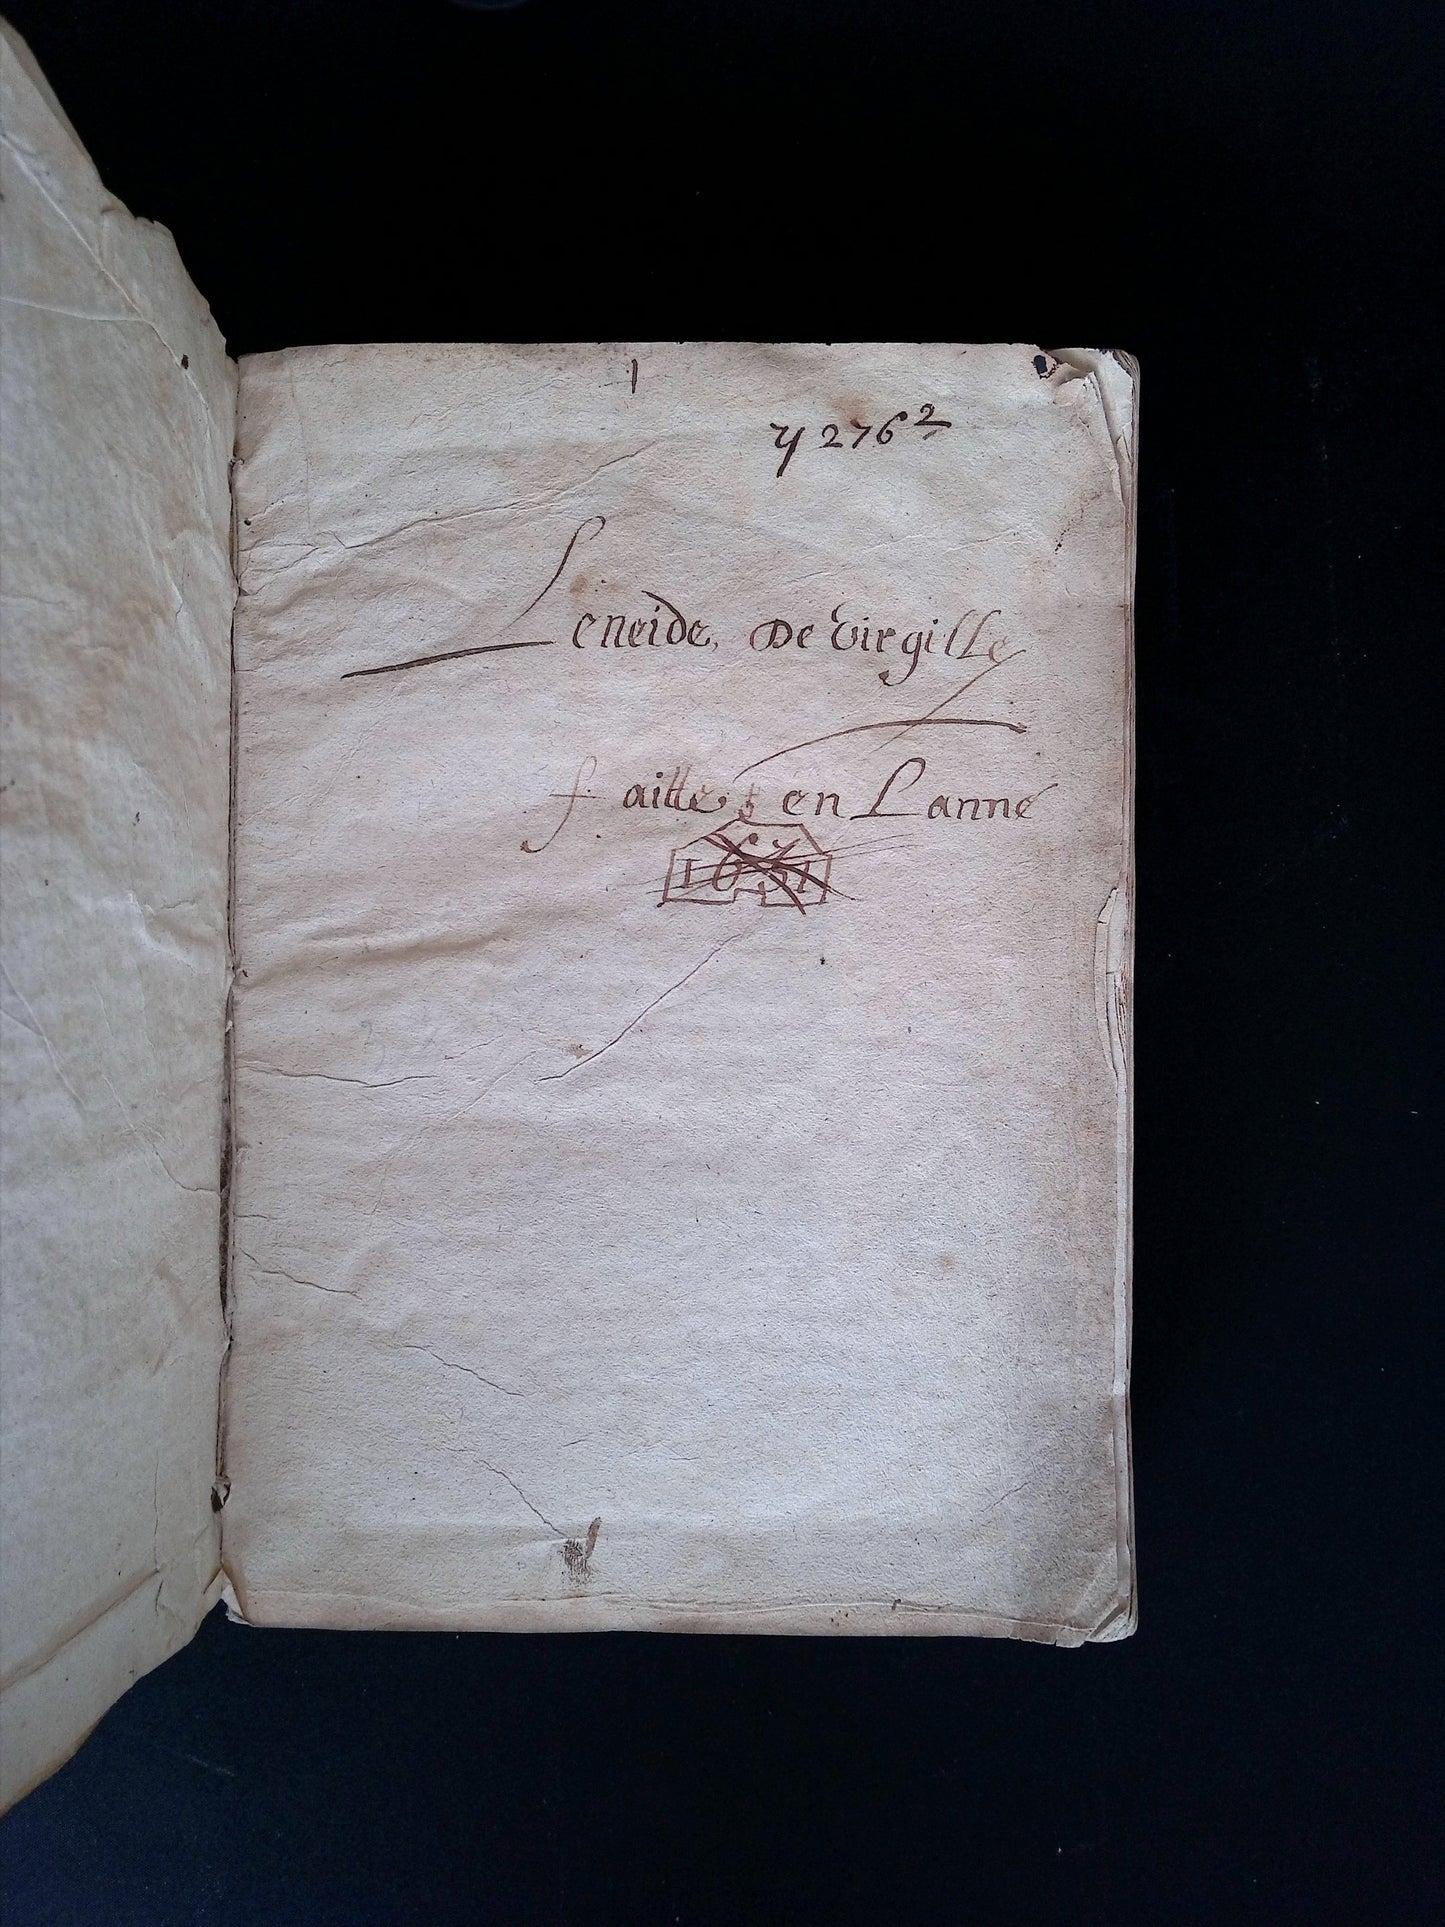 1
y 276²
Leneide, De virgille
faitte en Lanné
1631